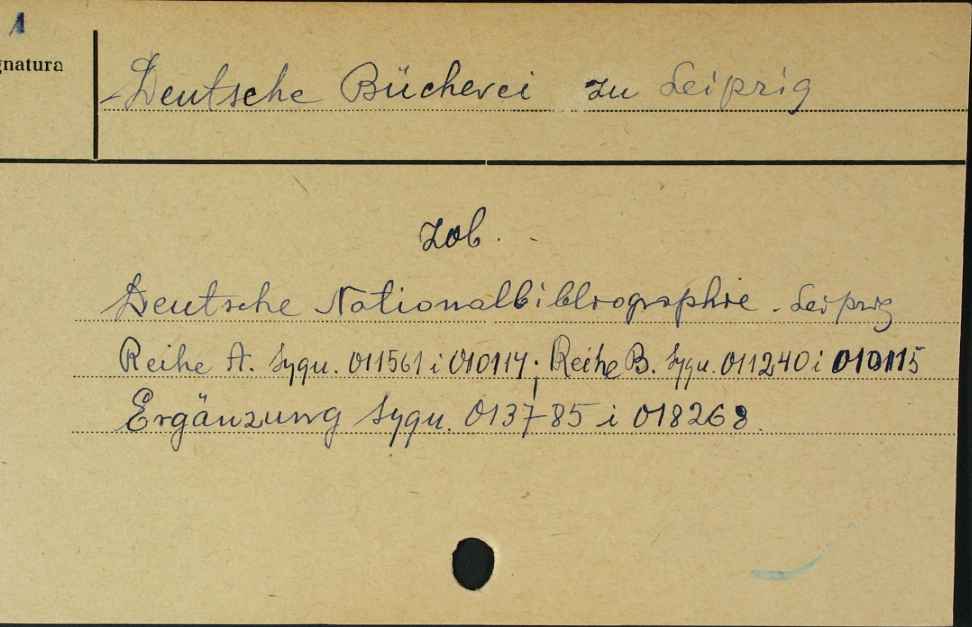 1
gnatura
Deutsche Bücherei zu Leipzig
Zob.
Deutsche Nationalbibliographie. Leipzig
Reihe A. Sygn. 011561 i 010114; Reihe B. Sygn. 011240 i 010115
Ergänzung Sygn. 013785 i 018268.